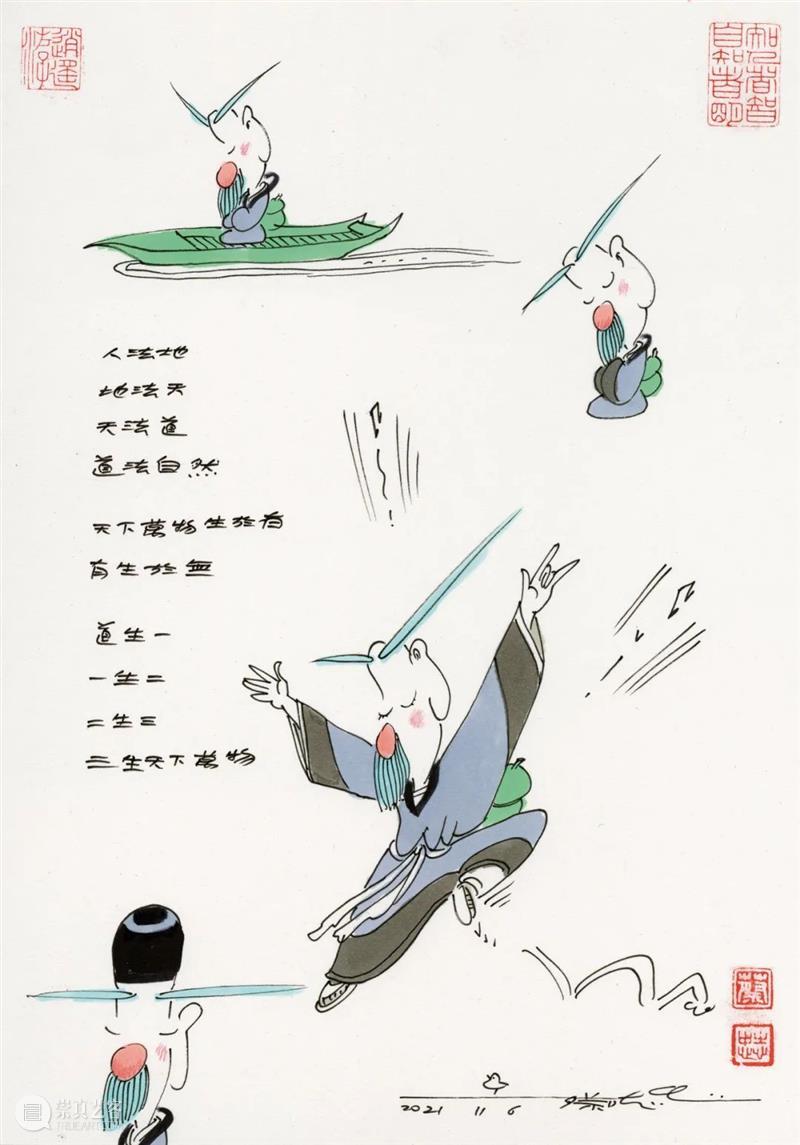 逍遙游
知人者智
自知者明
人法地
地法天
天法道
道法自然
天下萬物生於有
有生於無
道生一
一生二
二生三
三生天下萬物
蔡
志忠
2021 11 6
崇真艺客
TRUEART.COM